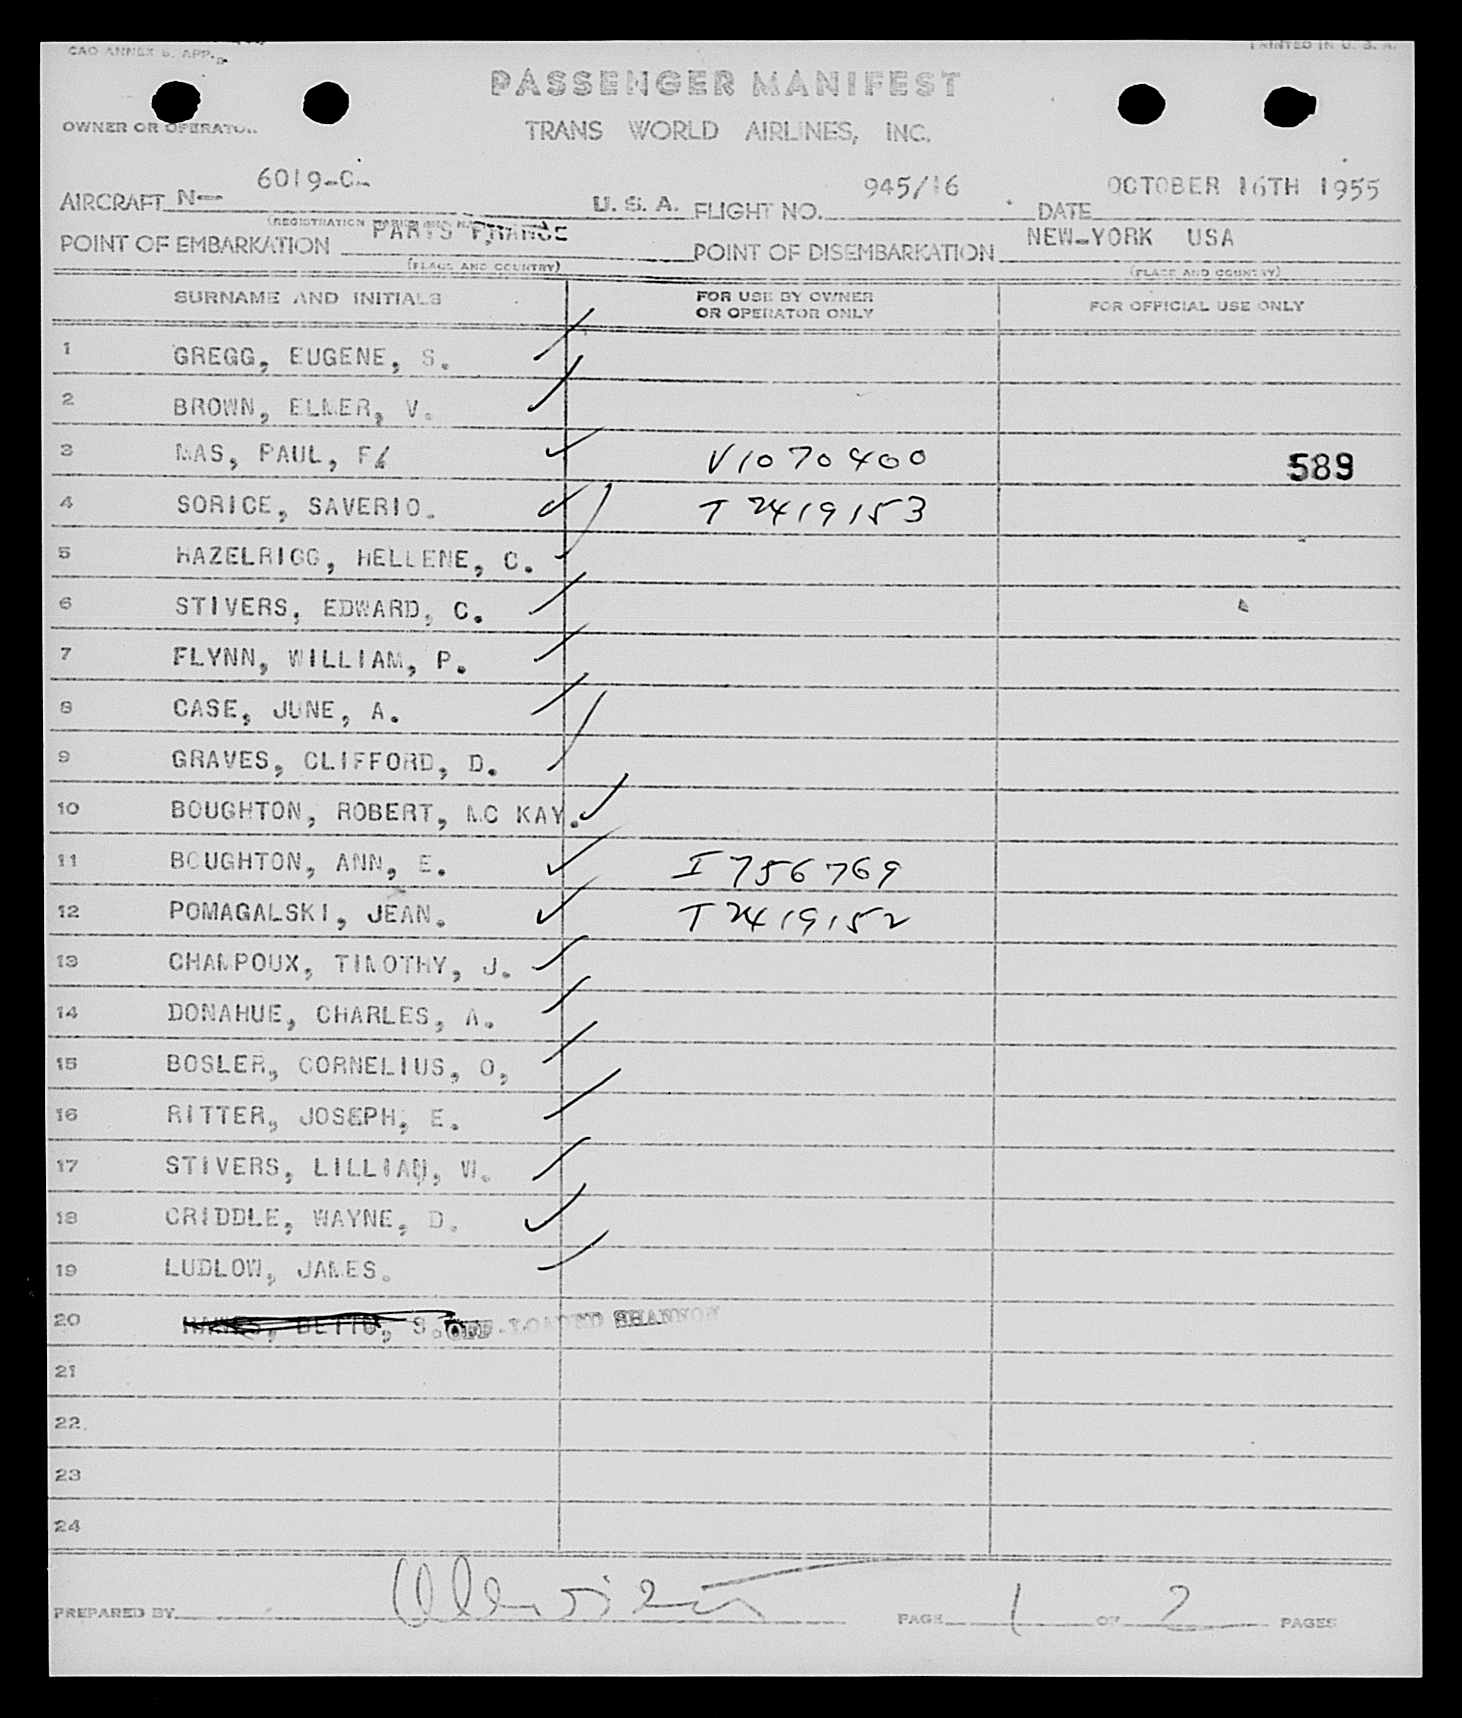 CAO ANNEX 5. APP.
PRINTED IN U. S. A.
PASSENGER MANIFEST
OWNER OR OPERATOR
TRANS WORLD AIRLINES, INC.
AIRCRAFT N— 6019-C- U. S. A. FLIGHT NO. 945/16 DATE OCTOBER 16TH 1955
(REGISTRATION
POINT OF EMBARKATION PARIS FRANCE POINT OF DISEMBARKATION NEW-YORK USA
(PLACE AND COUNTRY) (PLACE AND COUNTRY)
SURNAME AND INITIALS FOR USE BY OWNER OR OPERATOR ONLY FOR OFFICIAL USE ONLY
1 GREGG, EUGENE, S.
2 BROWN, ELMER, V.
3 MAS, PAUL, F. V1070400 589
4 SORICE, SAVERIO. T2419153
5 HAZELRIGG, HELLENE, C.
6 STIVERS, EDWARD, C.
7 FLYNN, WILLIAM, P.
8 CASE, JUNE, A.
9 GRAVES, CLIFFORD, D.
10 BOUGHTON, ROBERT, MC KAY.
11 BOUGHTON, ANN, E. I756769
12 POMAGALSKI, JEAN. T2419152
13 CHAMPOUX, TIMOTHY, J.
14 DONAHUE, CHARLES, A.
15 BOSLER, CORNELIUS, O,
16 RITTER, JOSEPH, E.
17 STIVERS, LILLIAN, W.
18 CRIDDLE, WAYNE, D.
19 LUDLOW, JAMES.
20 S. OFF-LOADED SHANNON
21
22.
23
24
PREPARED BY PAGE 1 OF 2 PAGES